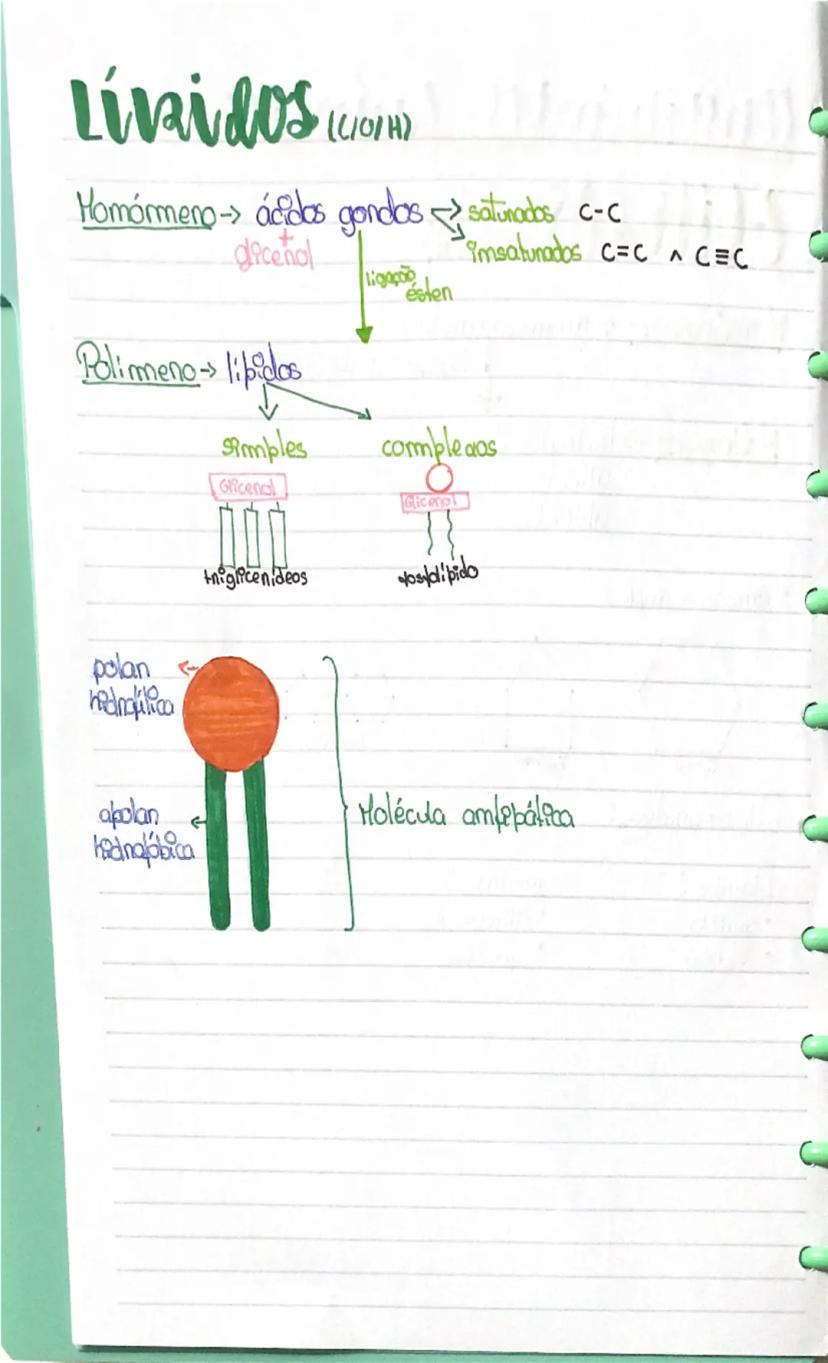 Lípidos (C/O/H)
Monómero → ácidos gordos → saturados C-C
+ → insaturados C=C ∧ C≡C
glicerol
ligação
éster
Polímero → lípidos
simples complexos
Glicerol Glicerol
triglicerídeos fosfolípido
polar
hidrofílica
apolar Molécula anfipática
hidrofóbica